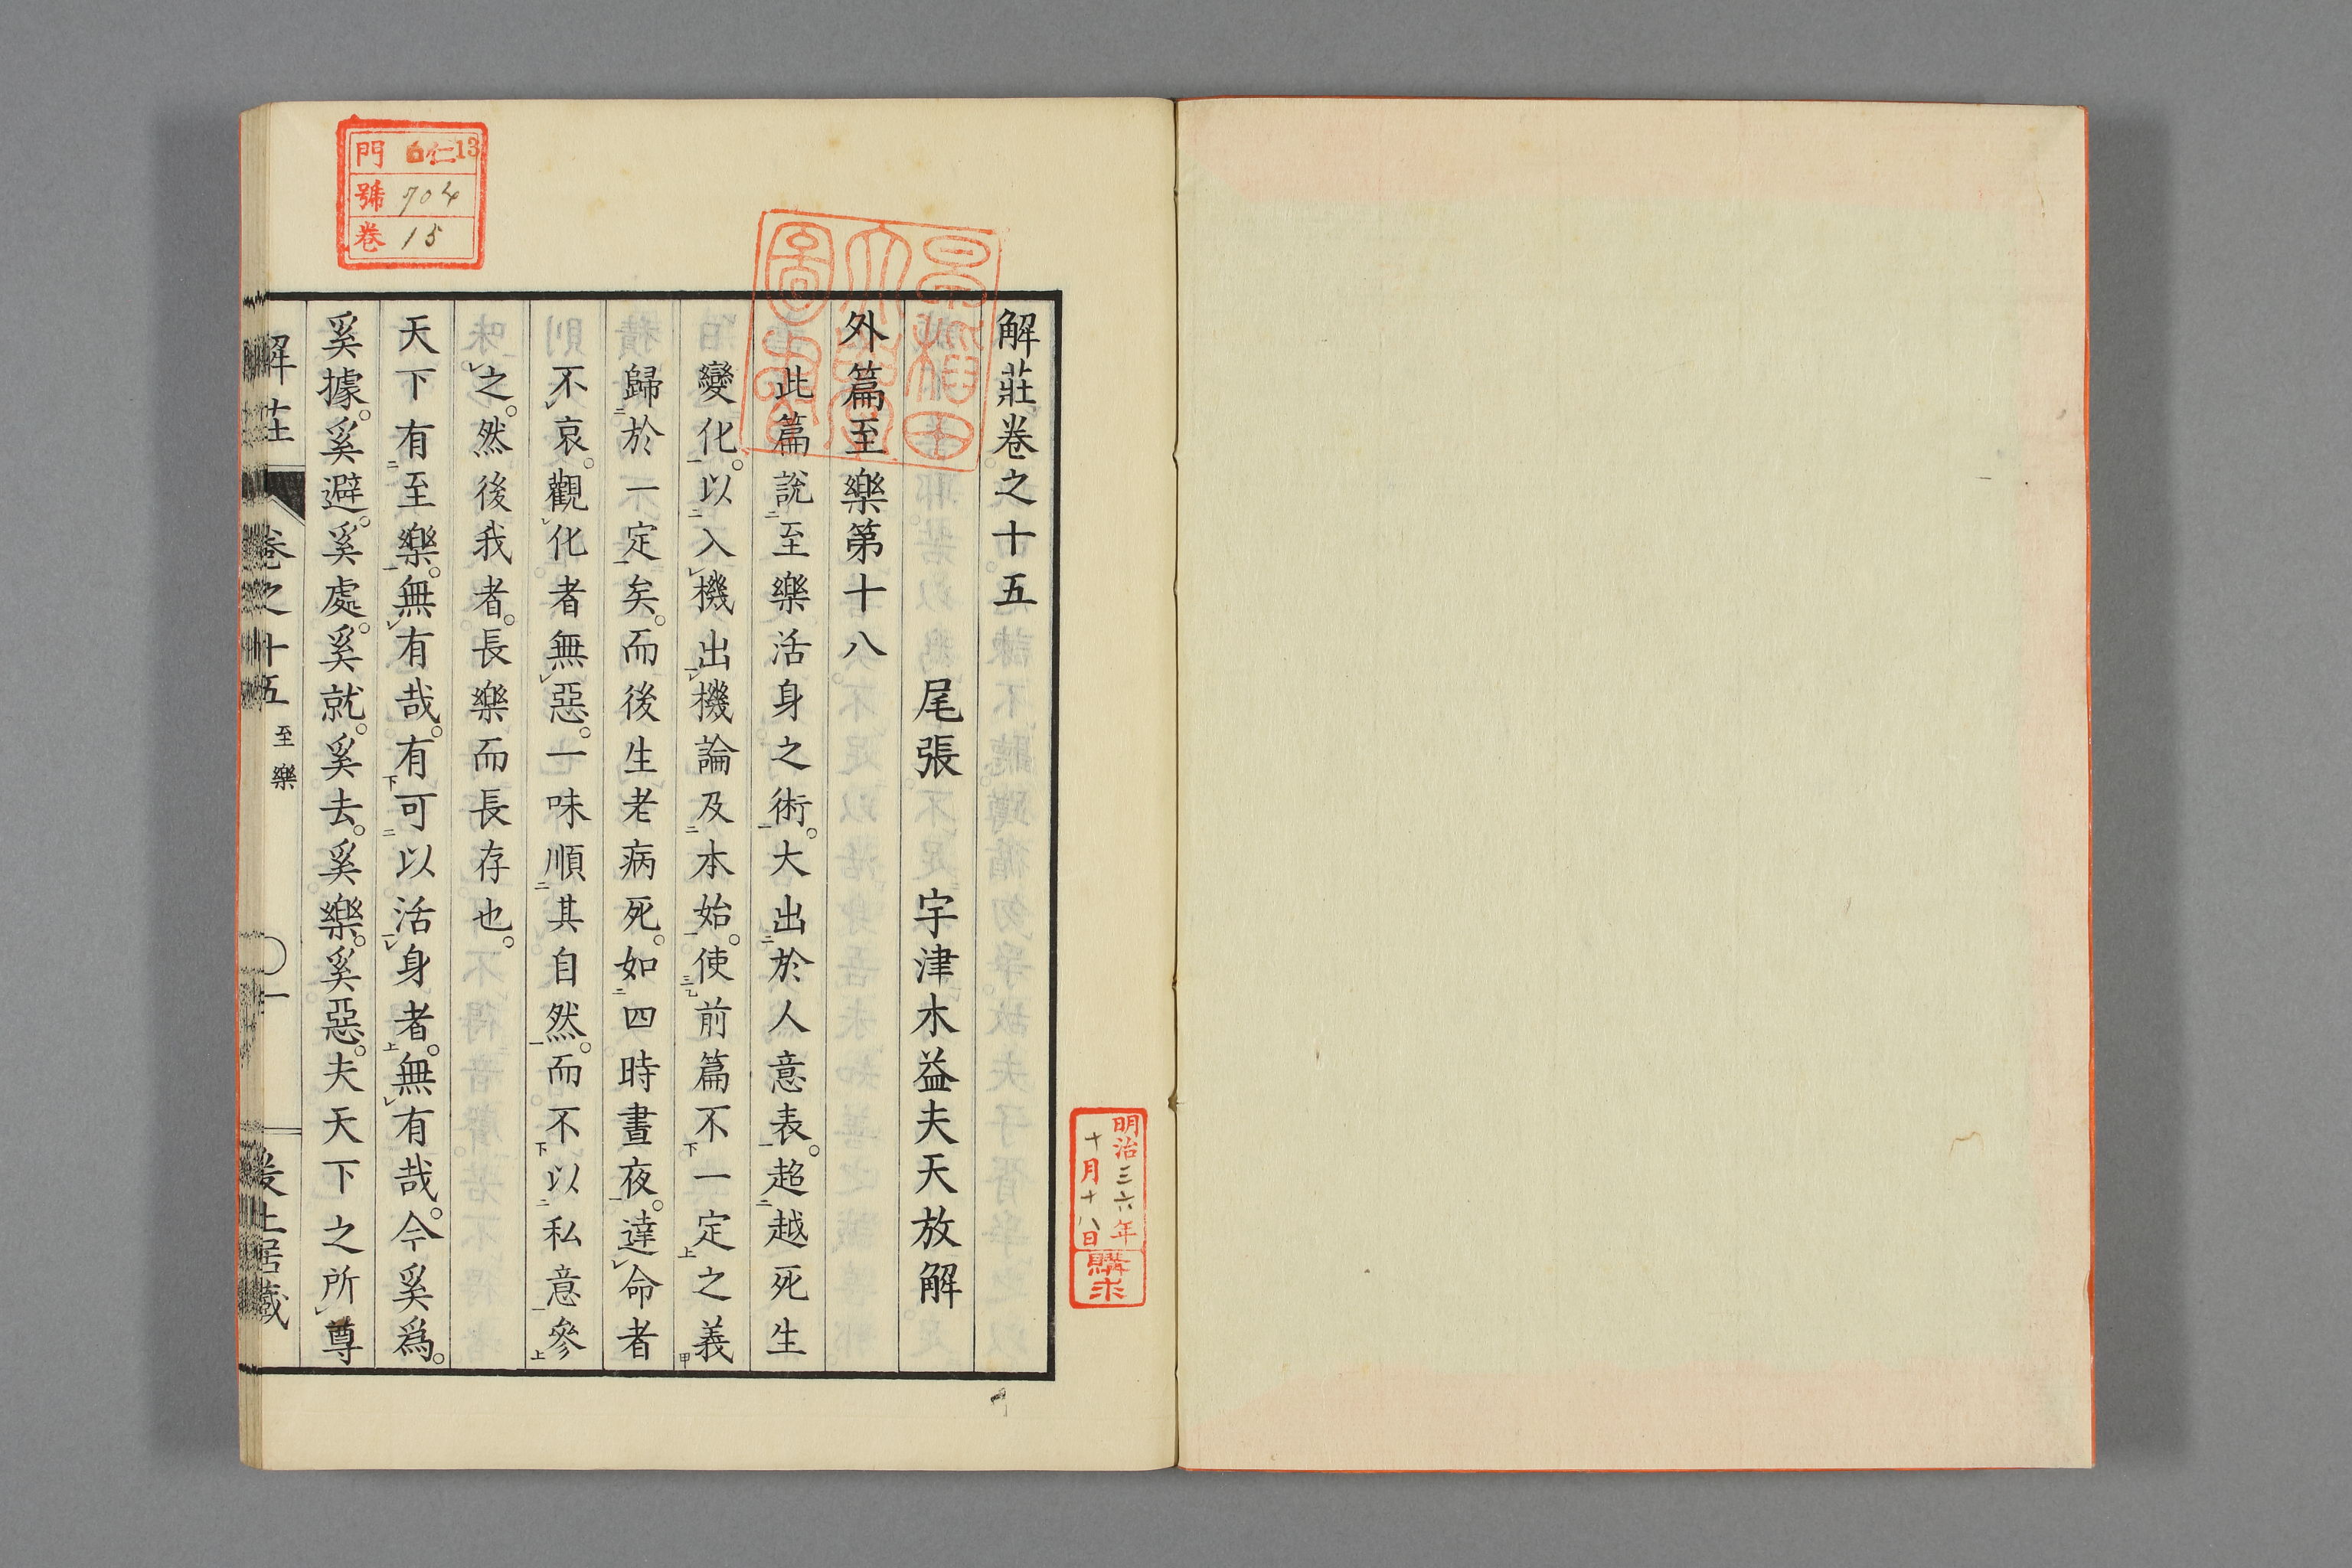 解莊卷之十五
尾張 宇津木益夫天放解
外篇至樂第十八
此篇說至樂活身之術。大出於人意表。超越死生
變化。以入機出機論及本始。使前篇不一定之義
歸於一定矣。而後生老病死。如四時晝夜。達命者
不哀。觀化者無惡。一味順其自然。而不以私意參
之。然後我者。長樂而長存也。
天下有至樂。無有哉。有可以活身者。無有哉。今奚爲。
奚據。奚避。奚處。奚就。奚去。奚樂。奚惡。夫天下之所尊
解莊 卷之十五 至樂 一
門 仁13
號 704
卷 15
早稻田大學圖書
明治三六年
十月十八日
購求